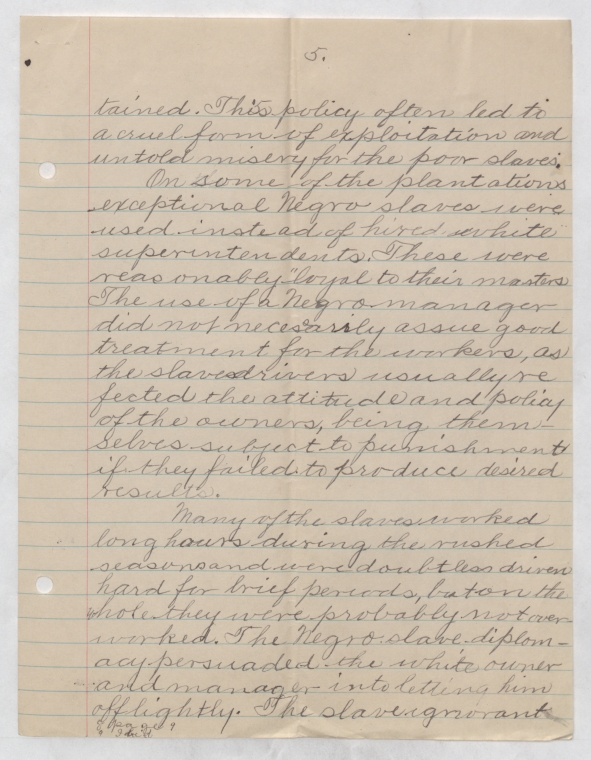 5.
tained. This policy often led to
a cruel form of exploitation and
untold misery for the poor slaves.
On some of the plantations
exceptional Negro slaves were
used instead of hired white
superintendents. These were
reasonably "loyal to their masters
The use of a Negro manager
did not necessarily assue good
treatment for the workers, as
the slavedrivers usually re
fected the attitude and policy
of the owners, being them-
selves subject to punishment
if they failed to produce desired
results.
Many of the slaves worked
long hours during the rushed
seasons and were doubtless driven
hard for brief periods, but on the
whole they were probably not over-
worked. The Negro slave diplom-
acy persuaded the white owner
and manager into letting him
off lightly. The slave ignorant